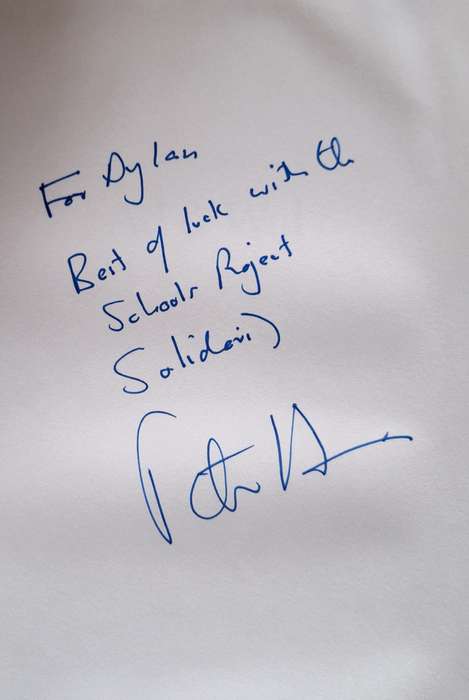 For Dylan
Best of luck with the
Schools Project
Solidari)
Peter